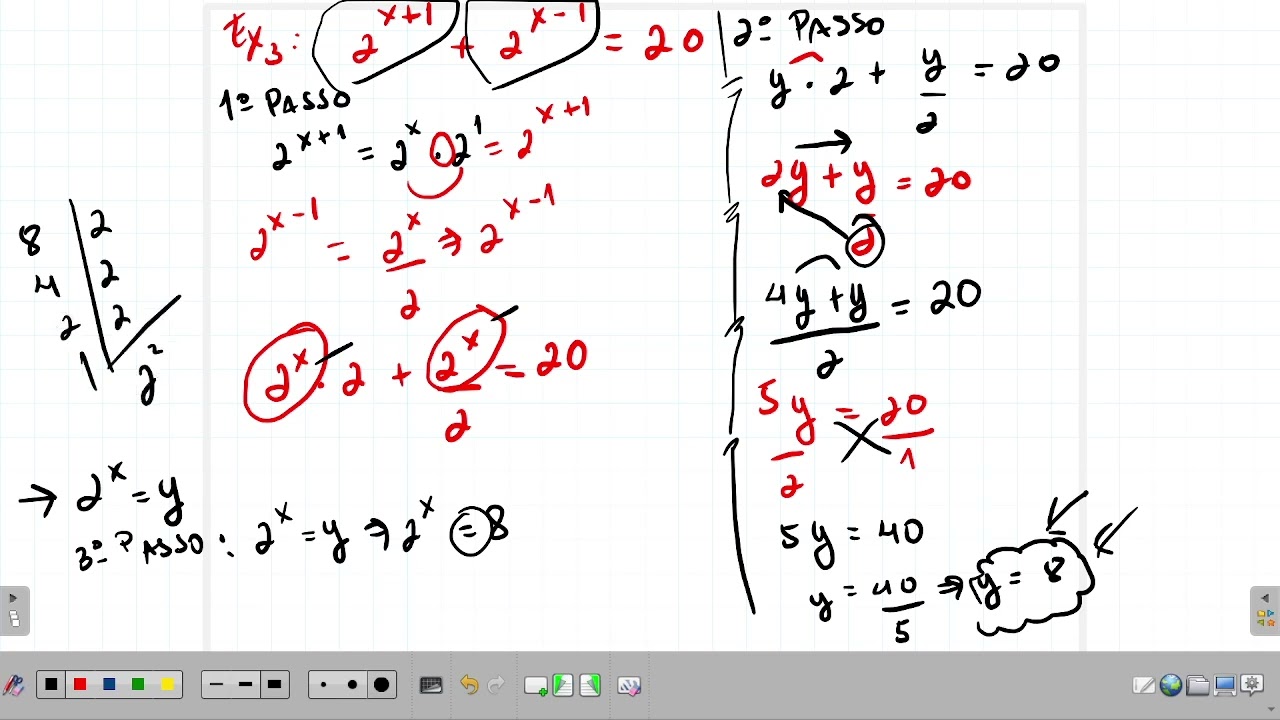 Ex3: 2^(x+1) + 2^(x-1) = 20
1º PASSO
2^(x+1) = 2^x · 2^1 = 2^(x+1)
2^(x-1) = 2^x/2 ⇒ 2^(x-1)
2^x · 2 + 2^x/2 = 20
8 | 2
4 | 2
2 | 2
1 | 2^2
→ 2^x = y
3º PASSO: 2^x = y ⇒ 2^x = 8
2º PASSO
y · 2 + y/2 = 20
2y + y/2 = 20
(4y + y)/2 = 20
5y/2 = 20/1
5y = 40
y = 40/5 ⇒ y = 8